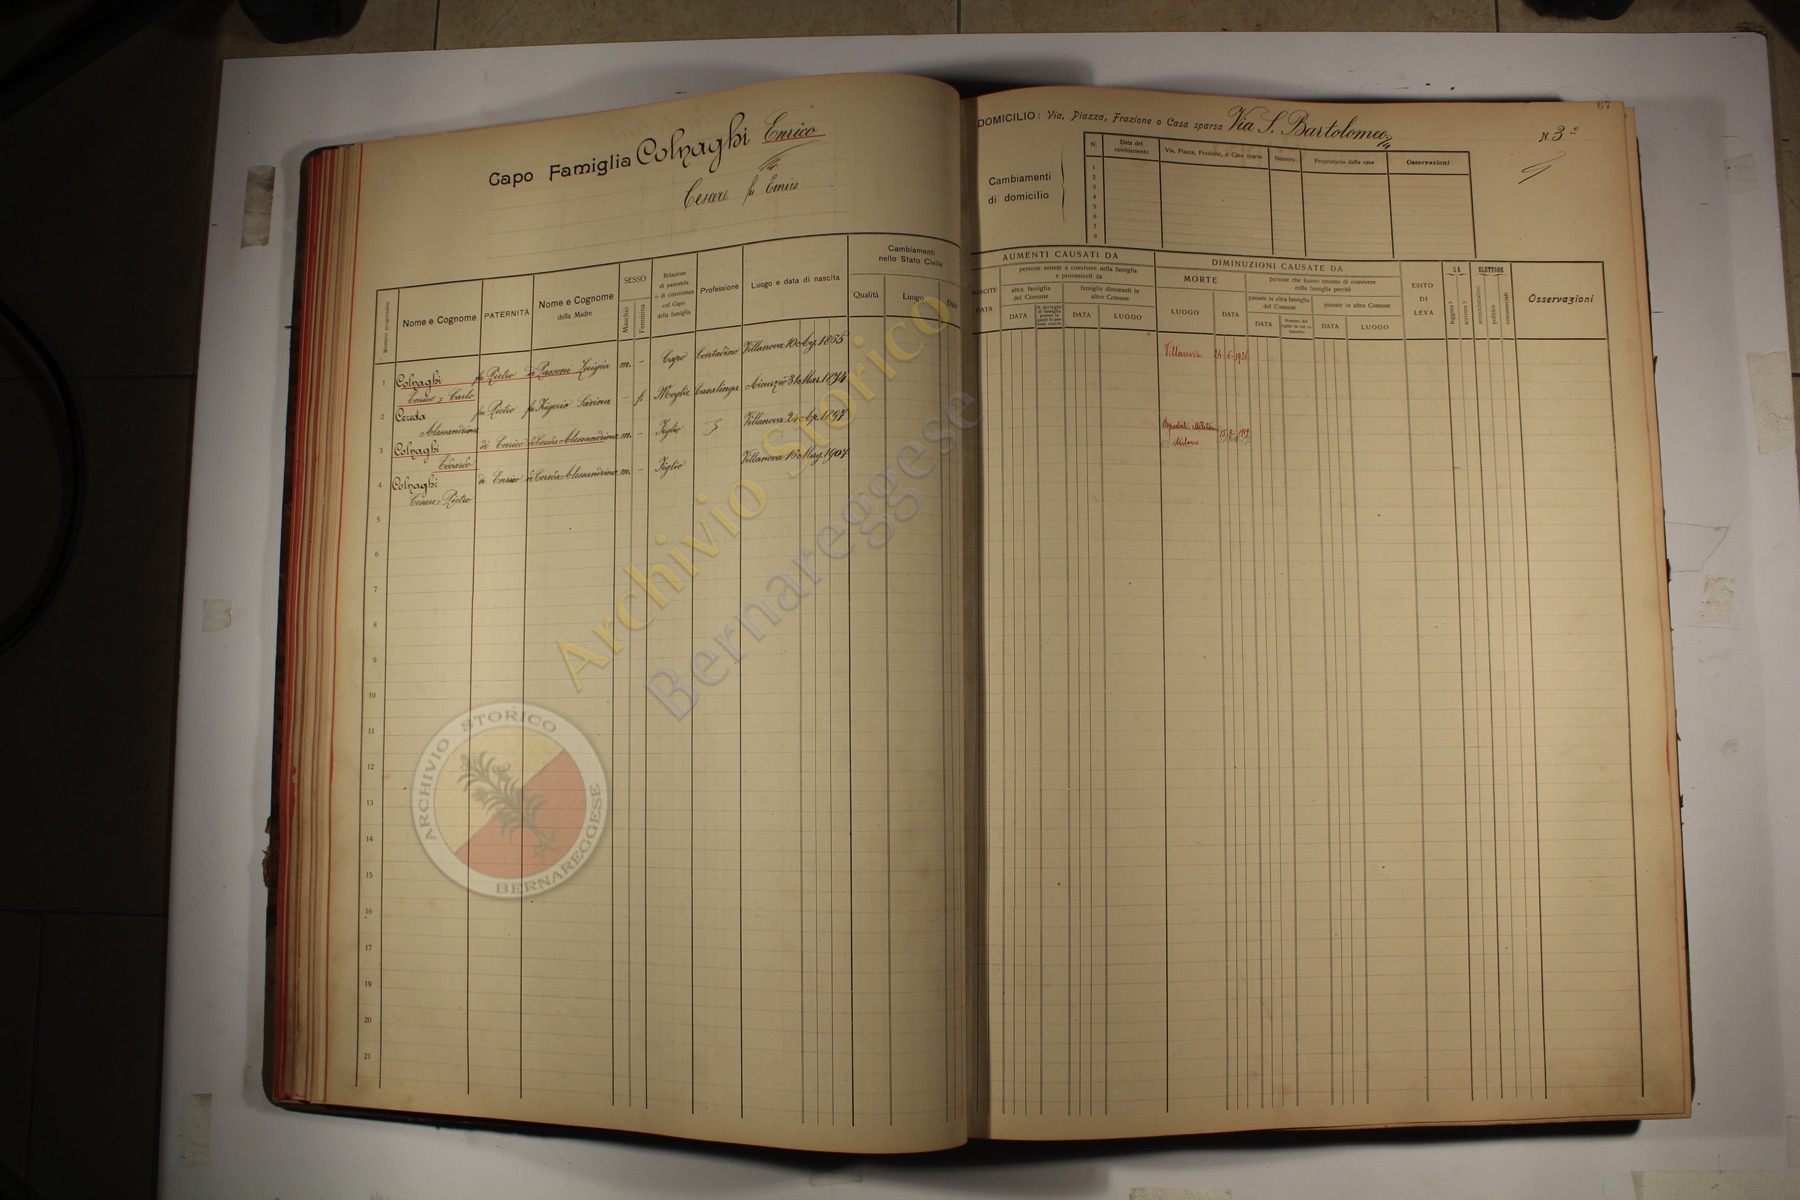 Capo Famiglia Colnaghi Enrico
Cesare fu Enrico
Numero progressivo
Nome e Cognome
PATERNITÀ
Nome e Cognome
della Madre
SESSO
Maschio
Femmina
Relazione
di parentela
o di convivenza
col Capo
della famiglia
Professione
Luogo e data di nascita
Cambiamenti
nello Stato Civile
Qualità
Luogo
Data
1 Colnaghi fu Pietro di Passoni Luigia m. - Capo Contadino Villanova 10 1855
Enrico = Carlo
2 Cereda fu Pietro fu Frigerio Savina - f Moglie Casalinga Aicurzio 31 Mar. 1874
Alessandrina
3 Colnaghi di Enrico di Cereda Alessandrina m. - Figlio Villanova 24 Ap. 1897
Edoardo
4 Colnaghi di Enrico di Cereda Alessandrina m. - Figlio Villanova 16 Mag. 1904
Cesare = Pietro
5
6
7
8
9
10
11
12
13
14
15
16
17
19
20
21
67
DOMICILIO: Via, Piazza, Frazione o Casa sparsa Via S. Bartolomeo
N. 3
Cambiamenti
di domicilio
N.
Data del
cambiamento
Via, Piazza, Frazione, o Casa sparsa
Numero
Proprietario della casa
Osservazioni
1
2
3
4
5
6
7
8
AUMENTI CAUSATI DA
NASCITE
DATA
persone venute a convivere nella famiglia
e provenienti da
altra famiglia
del Comune
DATA
famiglie dimoranti in
altro Comune
DATA
LUOGO
DIMINUZIONI CAUSATE DA
MORTE
LUOGO
DATA
persone che hanno cessato di convivere
colla famiglia perchè
passate in altra famiglia
del Comune
DATA
passate in altro Comune
DATA
LUOGO
ESITO
DI
LEVA
SA
leggere ?
scrivere ?
ELETTORE
amministrativo
politico
commerciale
Osservazioni
Villanova 24-6-1926
Ospedale Militare
Milano
Archivio Storico
Bernareggese
ARCHIVIO STORICO
BERNAREGGESE